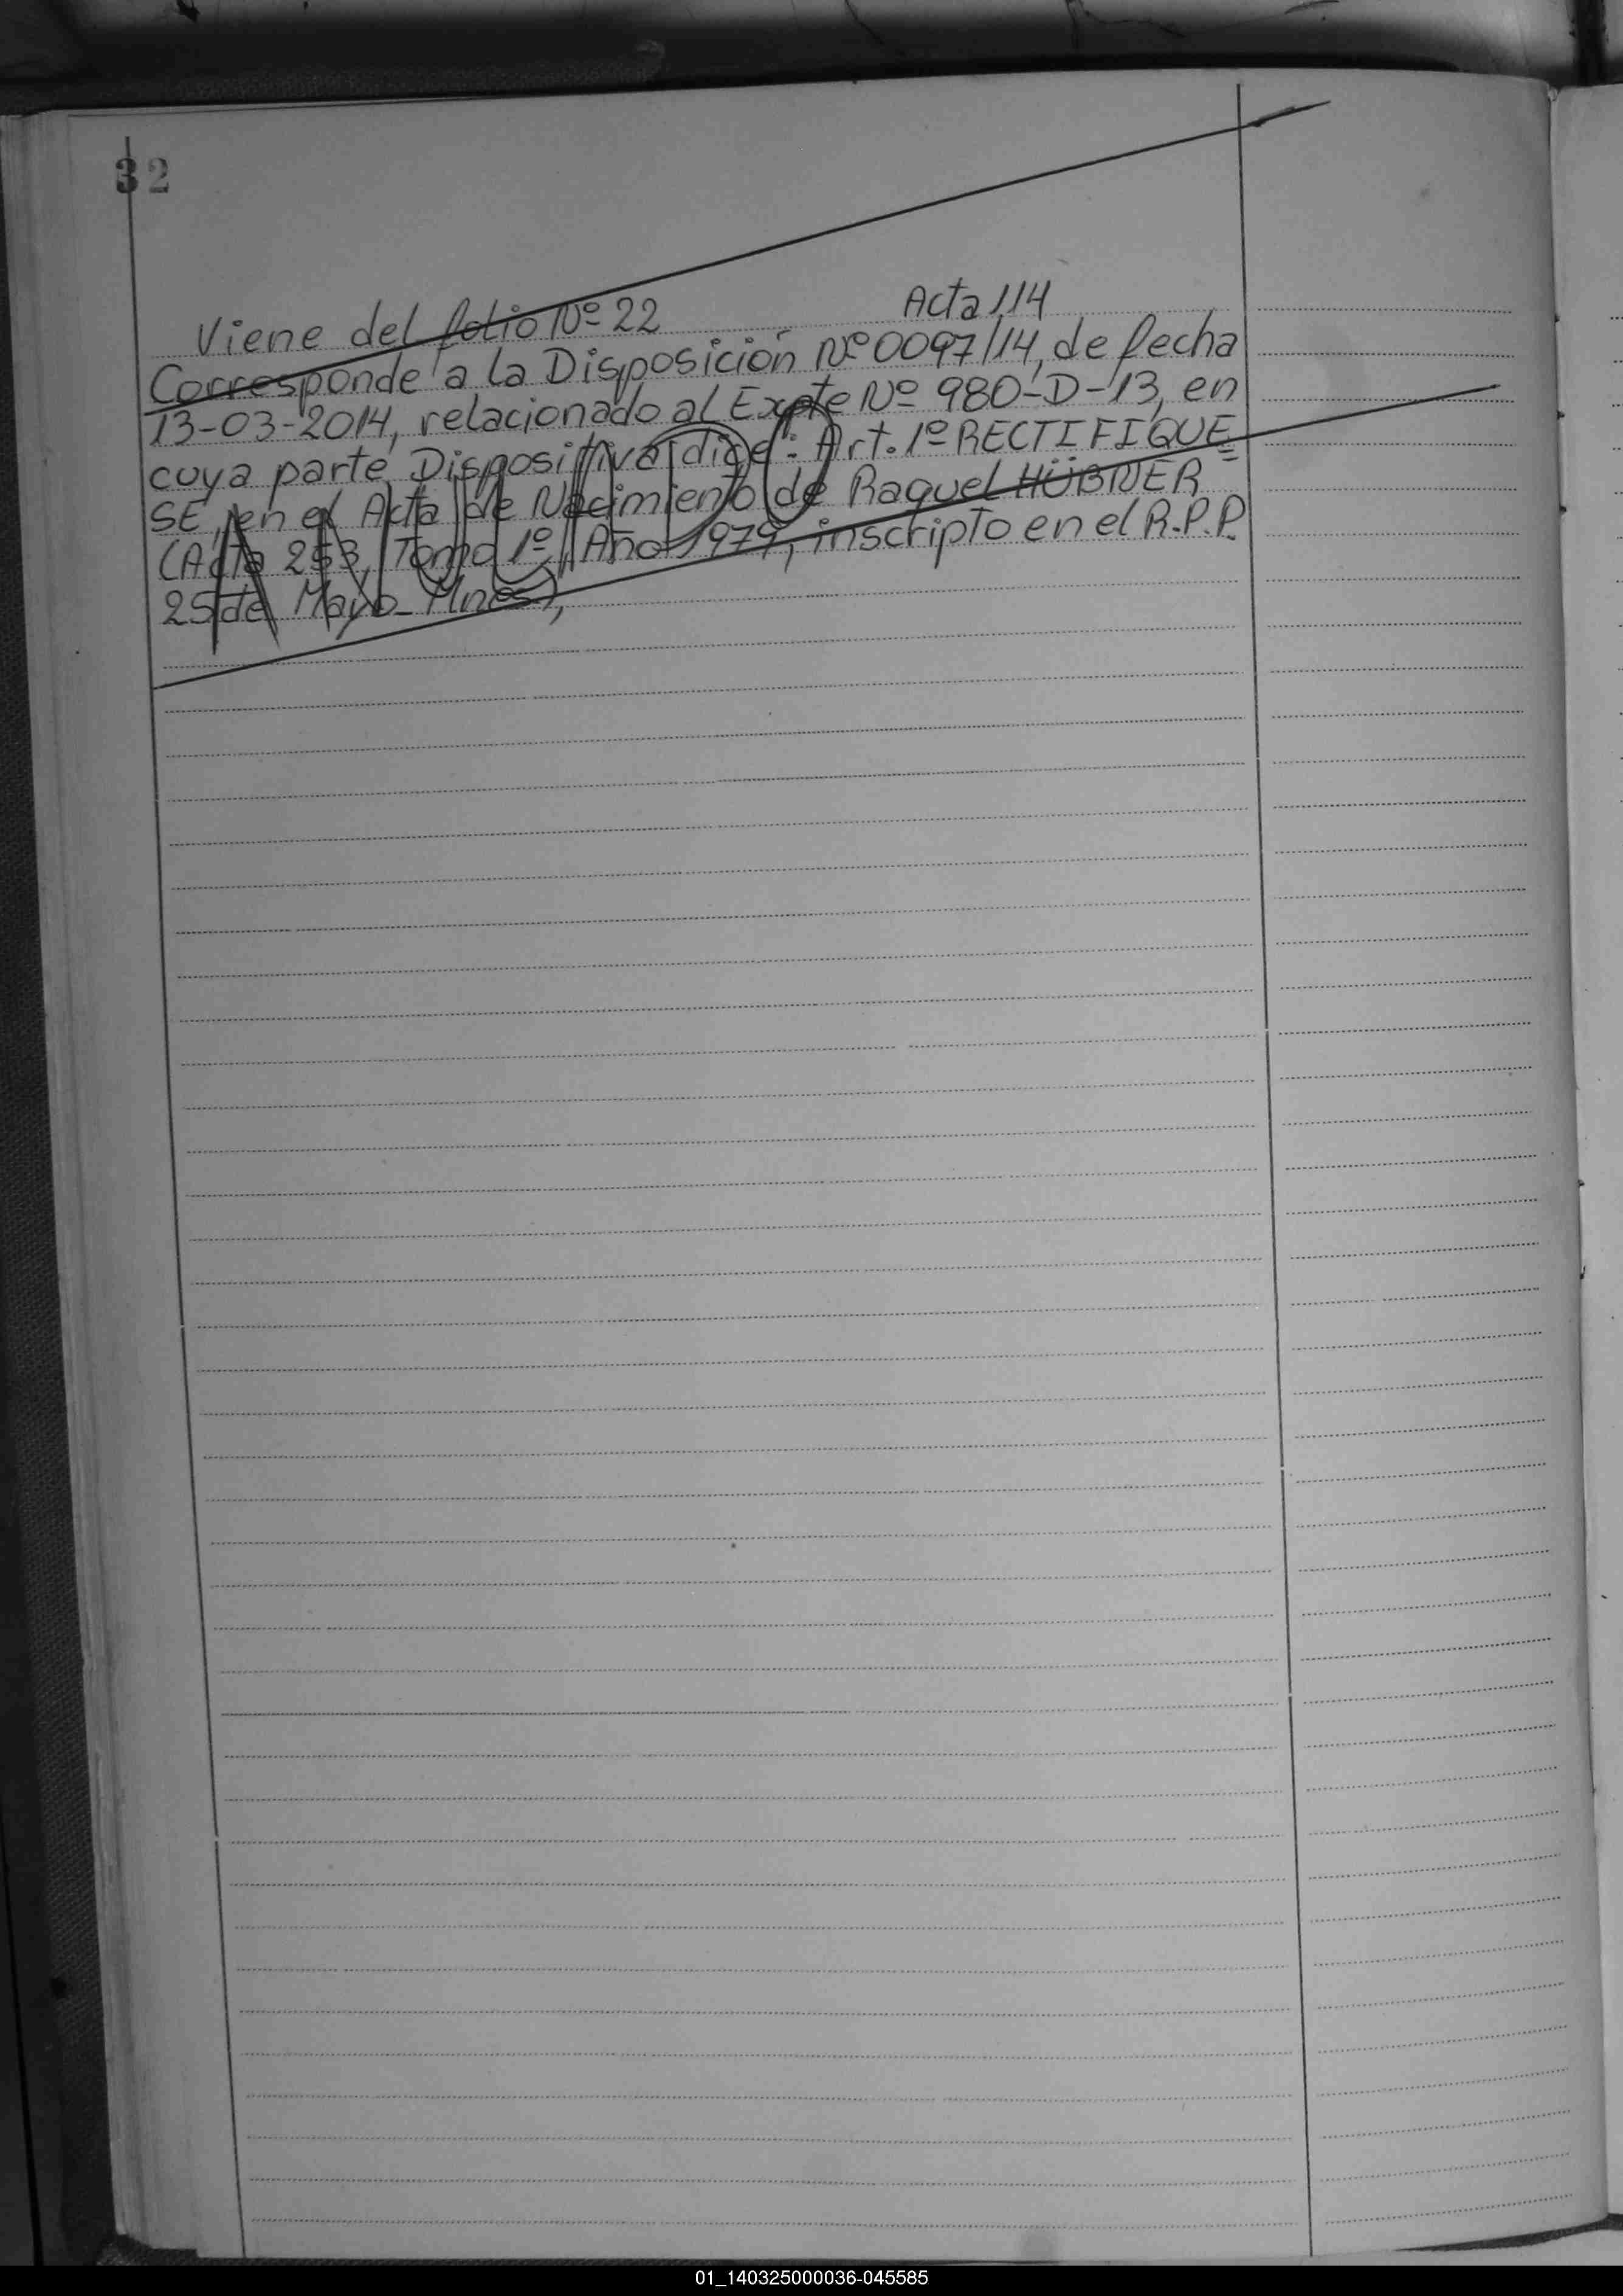 32
Viene del folio Nº 22 Acta 114
Corresponde a la Disposición Nº 0097/14, de fecha
13-03-2014, relacionado al Expte Nº 980-D-13, en
cuya parte Dispositiva dice: Art. 1º RECTIFIQUE=
SE, en el Acta de Nacimiento de Raquel HÜBNER
(Acta 253, Tomo 1º, Año 1979, inscripto en el R.P.P.
25 de Mayo - Mnes),
ANULADO
01_140325000036-045585